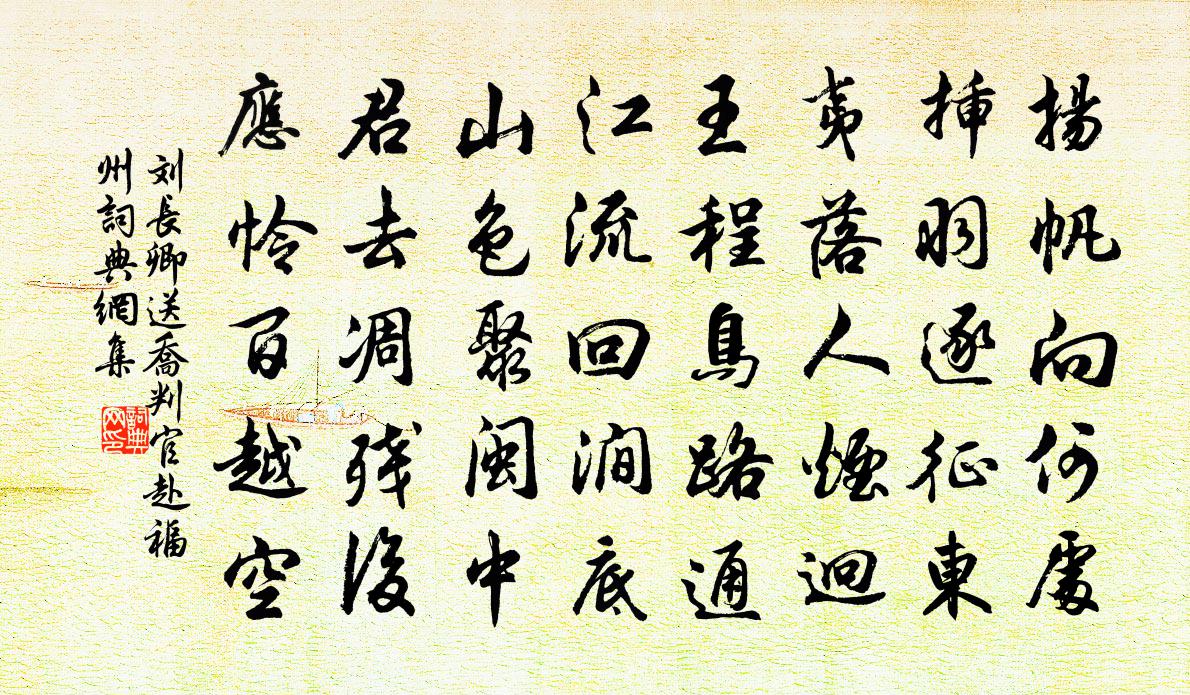 揚帆向何處
挿羽逐征東
夷落人煙迥
王程鳥路通
江流回澗底
山色聚閩中
君去凋残後
應怜百越空
刘長卿送喬判官赴福
州詞典網集
詞典
网印